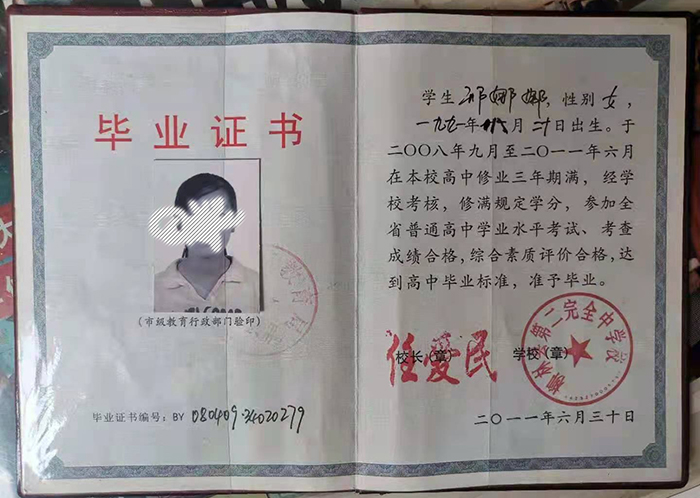 毕业证书
(市级教育行政部门验印)
毕业证书编号：BY 080409.34020279
学生 祁娜娜，性别 女，
一九九一年 月二十日出生。于
二〇〇八年九月至二〇一一年六月
在本校高中修业三年期满，经学
校考核，修满规定学分，参加全
省普通高中学业水平考试、考查
成绩合格，综合素质评价合格，达
到高中毕业标准，准予毕业。
校长（章） 学校（章）
任爱民
第二完全中学校
二〇一一年六月三十日